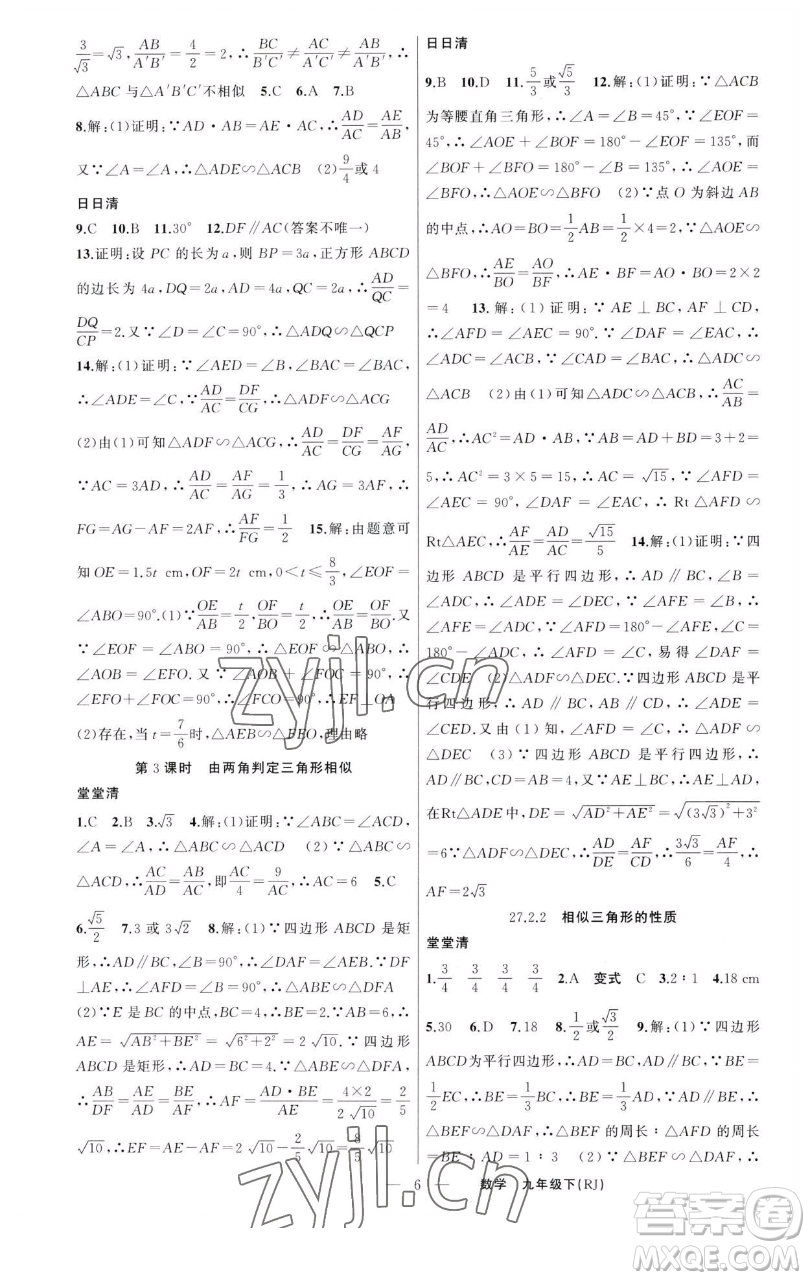 3/√3=√3,AB/A′B′=4/2=2,∴BC/B′C′≠AC/A′C′≠AB/A′B′,∴
△ABC与△A′B′C′不相似 5.C 6.A 7.B
8.解:(1)证明:∵AD·AB=AE·AC,∴AD/AC=AE/AB,
又∵∠A=∠A,∴△ADE∽△ACB (2)9/4或4
日日清
9.C 10.B 11.30° 12.DF∥AC(答案不唯一)
13.证明:设PC的长为a,则BP=3a,正方形ABCD
的边长为4a,DQ=2a,AD=4a,QC=2a,∴AD/QC=
DQ/CP=2.又∵∠D=∠C=90°,∴△ADQ∽△QCP
14.解:(1)证明:∵∠AED=∠B,∠BAC=∠BAC,
∴∠ADE=∠C,∵AD/AC=DF/CG,∴△ADF∽△ACG
(2)由(1)可知△ADF∽△ACG,∴AD/AC=DF/CG=AF/AG,
∵AC=3AD,∴AD/AC=AF/AG=1/3,∴AG=3AF,
FG=AG-AF=2AF,∴AF/FG=1/2 15.解:由题意可
知OE=1.5t cm,OF=2t cm,0<t≤8/3,
∠ABO=90°.(1)∵OE/AB=t/2,OF/BO=t/2,∴OE/AB=OF/BO.又
∵∠EOF=∠ABO=90°,∴△EOF∽△ABO,∴
∠AOB=∠EFO.又∵∠AOB+∠FOC=90°,∴
∠EFO+∠FOC=90°,∴∠FCO=90°,∴EF⊥OA
(2)存在,当t=7/6时,△EAB∽△BFO,理由略
第3课时 由两角判定三角形相似
堂堂清
1.C 2.B 3.√3 4.解:(1)证明:∵∠ABC=∠ACD,
∠A=∠A,∴△ABC∽△ACD (2)∵△ABC∽
△ACD,∴AC/AD=AB/AC,即AC/4=9/AC,∴AC=6 5.C
6.√5/2 7.3或3√2 8.解:(1)∵四边形ABCD是矩
形,∴AD∥BC,∠B=90°,∴∠DAF=∠AEB.∵DF
⊥AE,∴∠AFD=∠B=90°,∴△ABE∽△DFA
(2)∵E是BC的中点,BC=4,∴BE=2.∵AB=6,∴
AE=√(AB²+BE²)=√(6²+2²)=2√10.∵四边形
ABCD是矩形,∴AD=BC=4.∵△ABE∽△DFA,
∴AB/DF=AE/AD=BE/AF,∴AF=AD·BE/AE=4×2/2√10=2/5
√10,∴EF=AE-AF=2√10-2/5√10=8/5√10
日日清
9.B 10.D 11.5/3或√5/3 12.解:(1)证明:∵△ACB
为等腰直角三角形,∴∠A=∠B=45°,∵∠EOF=
45°,∴∠AOE+∠BOF=180°-∠EOF=135°,而
∠BOF+∠BFO=180°-∠B=135°,∴∠AOE=
∠BFO,∴△AOE∽△BFO (2)∵点O为斜边AB
的中点,∴AO=BO=1/2AB=1/2×4=2,∵△AOE∽
△BFO,∴AE/BO=AO/BF,∴AE·BF=AO·BO=2×2
=4 13.解:(1)证明:∵AE⊥BC,AF⊥CD,
∴∠AFD=∠AEC=90°.∵∠DAF=∠EAC,∴
∠ADC=∠ACB.∵∠CAD=∠BAC,∴△ADC∽
△ACB (2)由(1)可知△ADC∽△ACB,∴AC/AB=
AD/AC,∴AC²=AD·AB,∵AB=AD+BD=3+2=
5,∴AC²=3×5=15,∴AC=√15,∵∠AFD=
∠AEC=90°,∠DAF=∠EAC,∴Rt△AFD∽
Rt△AEC,∴AF/AE=AD/AC=√15/5 14.解:(1)证明:∵四
边形ABCD是平行四边形,∴AD∥BC,∠B=
∠ADC,∴∠ADE=∠DEC,∵∠AFE=∠ADC,∴
∠AFE=∠B,∵∠AFD=180°-∠AFE,∠C=
180°-∠B,∴∠AFD=∠C,易得∠DAF=
∠CDE (2)∵四边形ABCD是平
行四边形,∴AD∥BC,AB∥CD,∴∠ADE=
∠CED.又∵∠DAF=∠CDE,∴△ADF∽
△DEC (3)∵四边形ABCD是平行四边形,
∴AD∥BC,CD=AB=4.又∵AE⊥BC,∴AE⊥AD.
在Rt△ADE中,DE=√(AD²+AE²)=√((3√3)²+3²)
=6∵△ADF∽△DEC,∴AD/DE=AF/CD,∴3√3/6=AF/4,∴
AF=2√3
27.2.2 相似三角形的性质
堂堂清
1.3/4 3/4 3/4 3/4 2.A 变式 C 3.2∶1 4.18 cm
5.30 6.D 7.18 8.1/2或√3/2 9.解:(1)∵四边形
ABCD为平行四边形,∴AD=BC,AD∥BC,∵BE=
1/2EC,∴BE=1/3BC,∴BE=1/3AD,∵AD∥BE,∴
△BEF∽△DAF,∴△BEF的周长∶△DAF的周长
=BE∶AD=1/3
6 数学 九年级下(RJ)
zyjl.cn
zyjl.cn
答案圈
MXQE.COM